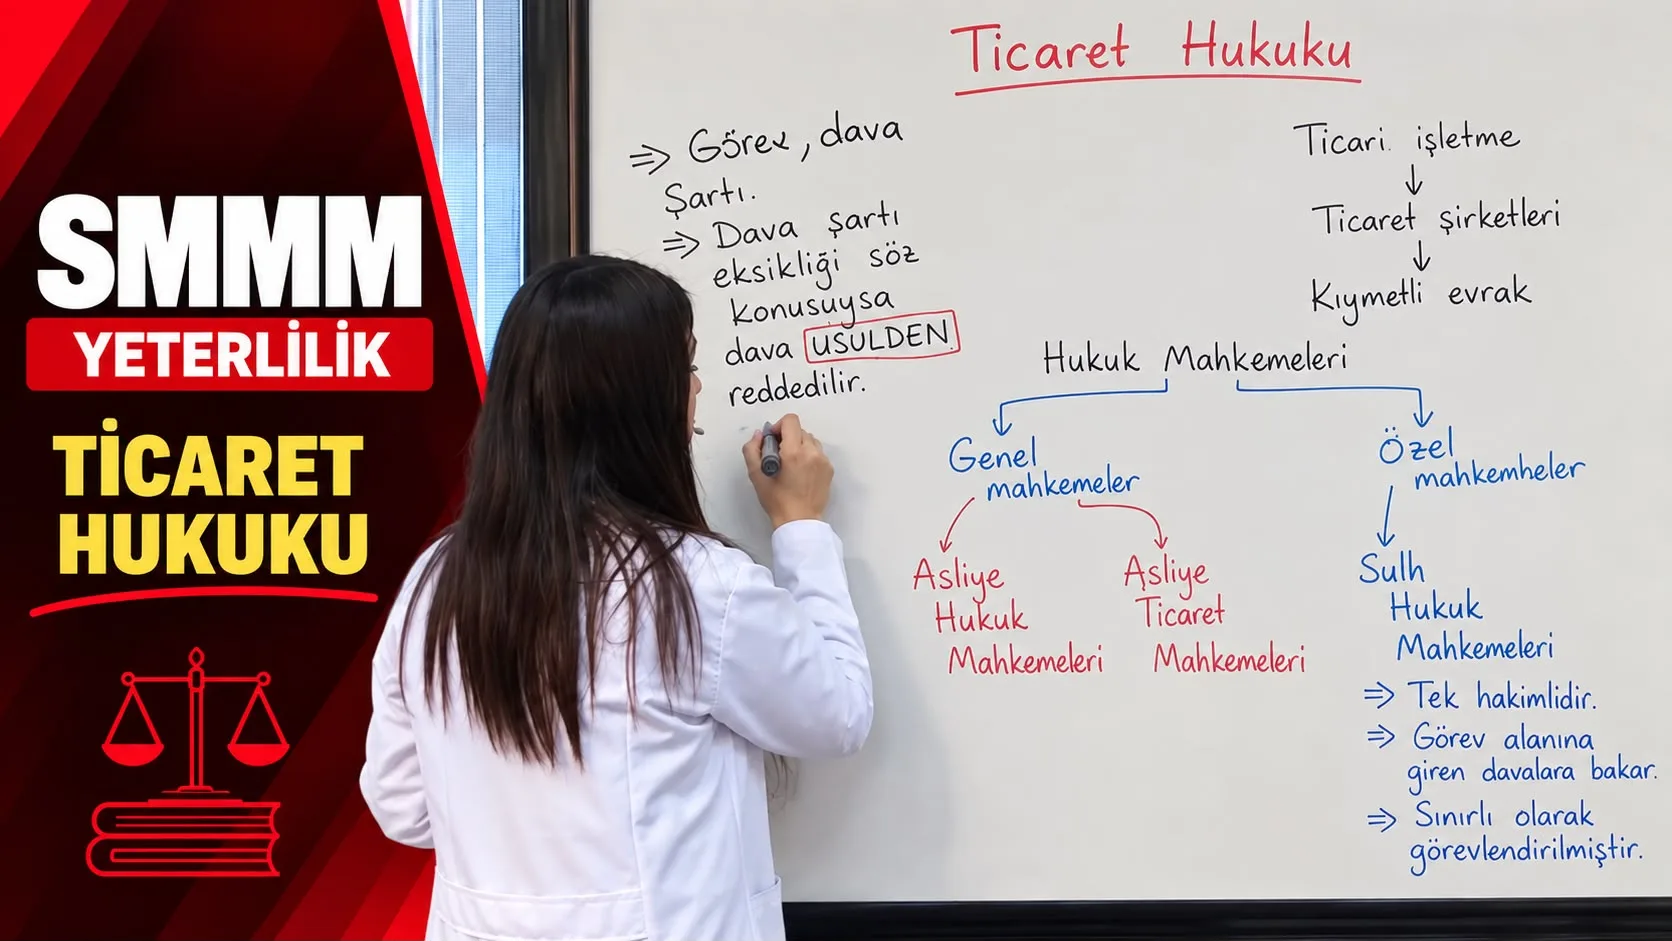 SMMM
YETERLİLİK
TİCARET
HUKUKU
Ticaret Hukuku
⇒ Görev, dava
Şartı.
⇒ Dava şartı
eksikliği söz
konusuysa
dava USULDEN
reddedilir.
Ticari işletme
↓
Ticaret şirketleri
↓
Kıymetli evrak
Hukuk Mahkemeleri
Genel
mahkemeler
Asliye
Hukuk
Mahkemeleri
Asliye
Ticaret
Mahkemeleri
Özel
mahkemheler
Sulh
Hukuk
Mahkemeleri
⇒ Tek hakimlidir.
⇒ Görev alanına
giren davalara bakar.
⇒ Sınırlı olarak
görevlendirilmiştir.